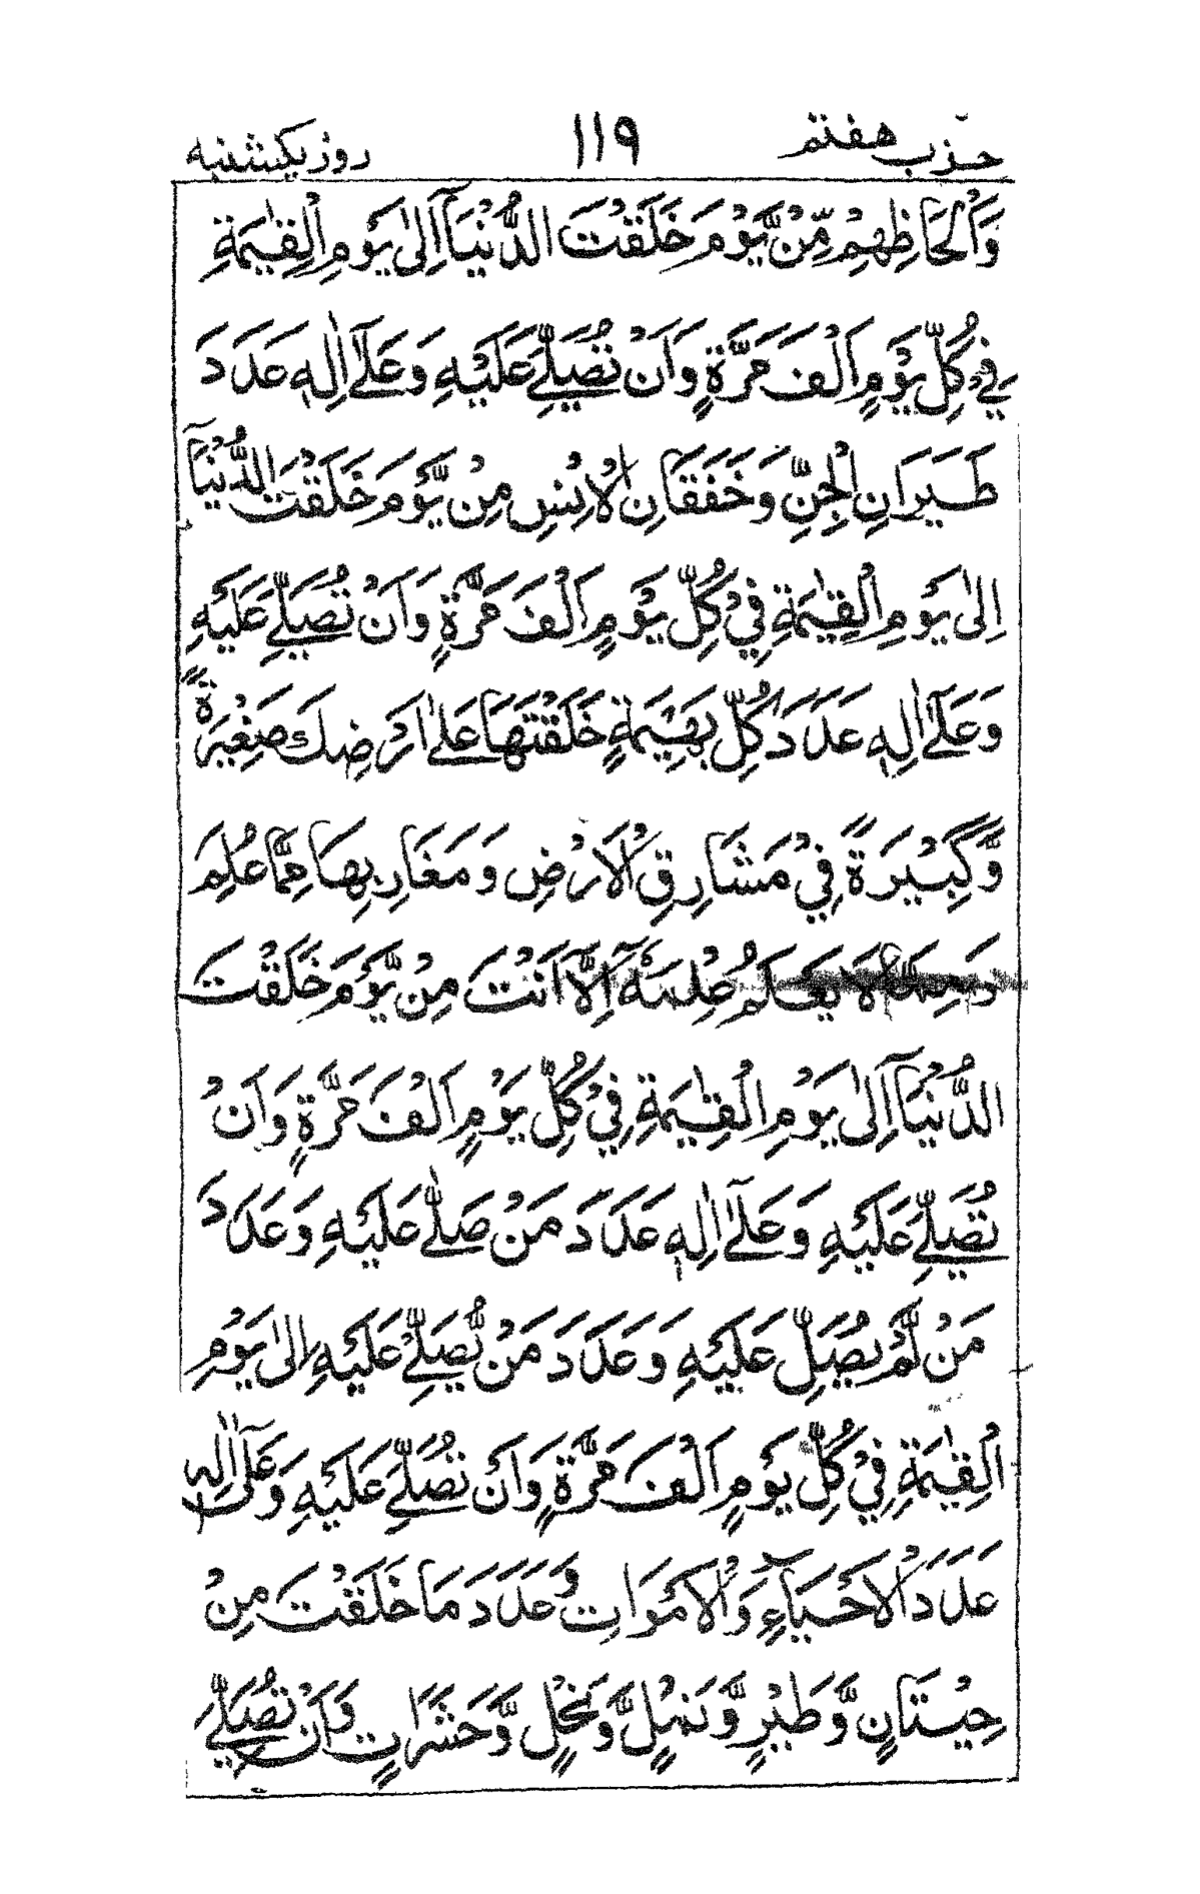 حزب هفتم ١١٩ روز یکشنبه
وَأَلْحَاظِهِمْ مِّنْ يَّوْمَ خَلَقْتَ الدُّنْيَآ اِلٰى يَوْمِ الْقِيٰمَةِ
فِيْ كُلِّ يَوْمٍ اَلْفَ مَرَّةٍ وَاَنْ تُصَلِّيَ عَلَيْهِ وَعَلٰٓى اٰلِهٖ عَدَدَ
طَيَرَانِ الْجِنِّ وَخَفَقَانِ الْاِنْسِ مِنْ يَّوْمَ خَلَقْتَ الدُّنْيَآ
اِلٰى يَوْمِ الْقِيٰمَةِ فِيْ كُلِّ يَوْمٍ اَلْفَ مَرَّةٍ وَاَنْ تُصَلِّيَ عَلَيْهِ
وَعَلٰٓى اٰلِهٖ عَدَدَ كُلِّ بَهِيْمَةٍ خَلَقْتَهَا عَلٰٓى اَرْضِكَ صَغِيْرَةٍ
وَّكَبِيْرَةً فِيْ مَشَارِقِ الْاَرْضِ وَمَغَارِبِهَا مِمَّا عُلِمَ
وَمِمَّا لَا يَعْلَمُ عِلْمَهٗٓ اِلَّآ اَنْتَ مِنْ يَّوْمَ خَلَقْتَ
الدُّنْيَآ اِلٰى يَوْمِ الْقِيٰمَةِ فِيْ كُلِّ يَوْمٍ اَلْفَ مَرَّةٍ وَاَنْ
تُصَلِّيَ عَلَيْهِ وَعَلٰٓى اٰلِهٖ عَدَدَ مَنْ صَلّٰى عَلَيْهِ وَعَدَدَ
مَنْ لَّمْ يُصَلِّ عَلَيْهِ وَعَدَدَ مَنْ يُّصَلِّيْ عَلَيْهِ اِلٰى يَوْمِ
الْقِيٰمَةِ فِيْ كُلِّ يَوْمٍ اَلْفَ مَرَّةٍ وَاَنْ تُصَلِّيَ عَلَيْهِ وَعَلٰٓى اٰلِهٖ
عَدَدَ الْاَحْيَآءِ وَالْاَمْوَاتِ وَعَدَدَ مَا خَلَقْتَ مِنْ
حِيْتَانٍ وَّطَيْرٍ وَّنَمْلٍ وَّنَحْلٍ وَّحَشَرَاتٍ وَاَنْ تُصَلِّيَ